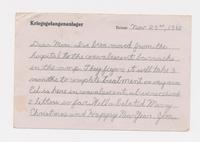 Kriegsgefangenenlager Datum: Nov. 23rd, 1943
Dear Mom: I've been moved from the
hospital to the convalescent barracks
in the camp. They figure it will take 3
months to complete treatment on my arm
Ed is here in convalescent, also received
2 letters so far. Well belated Merry
Christmas and Happy New Year. John